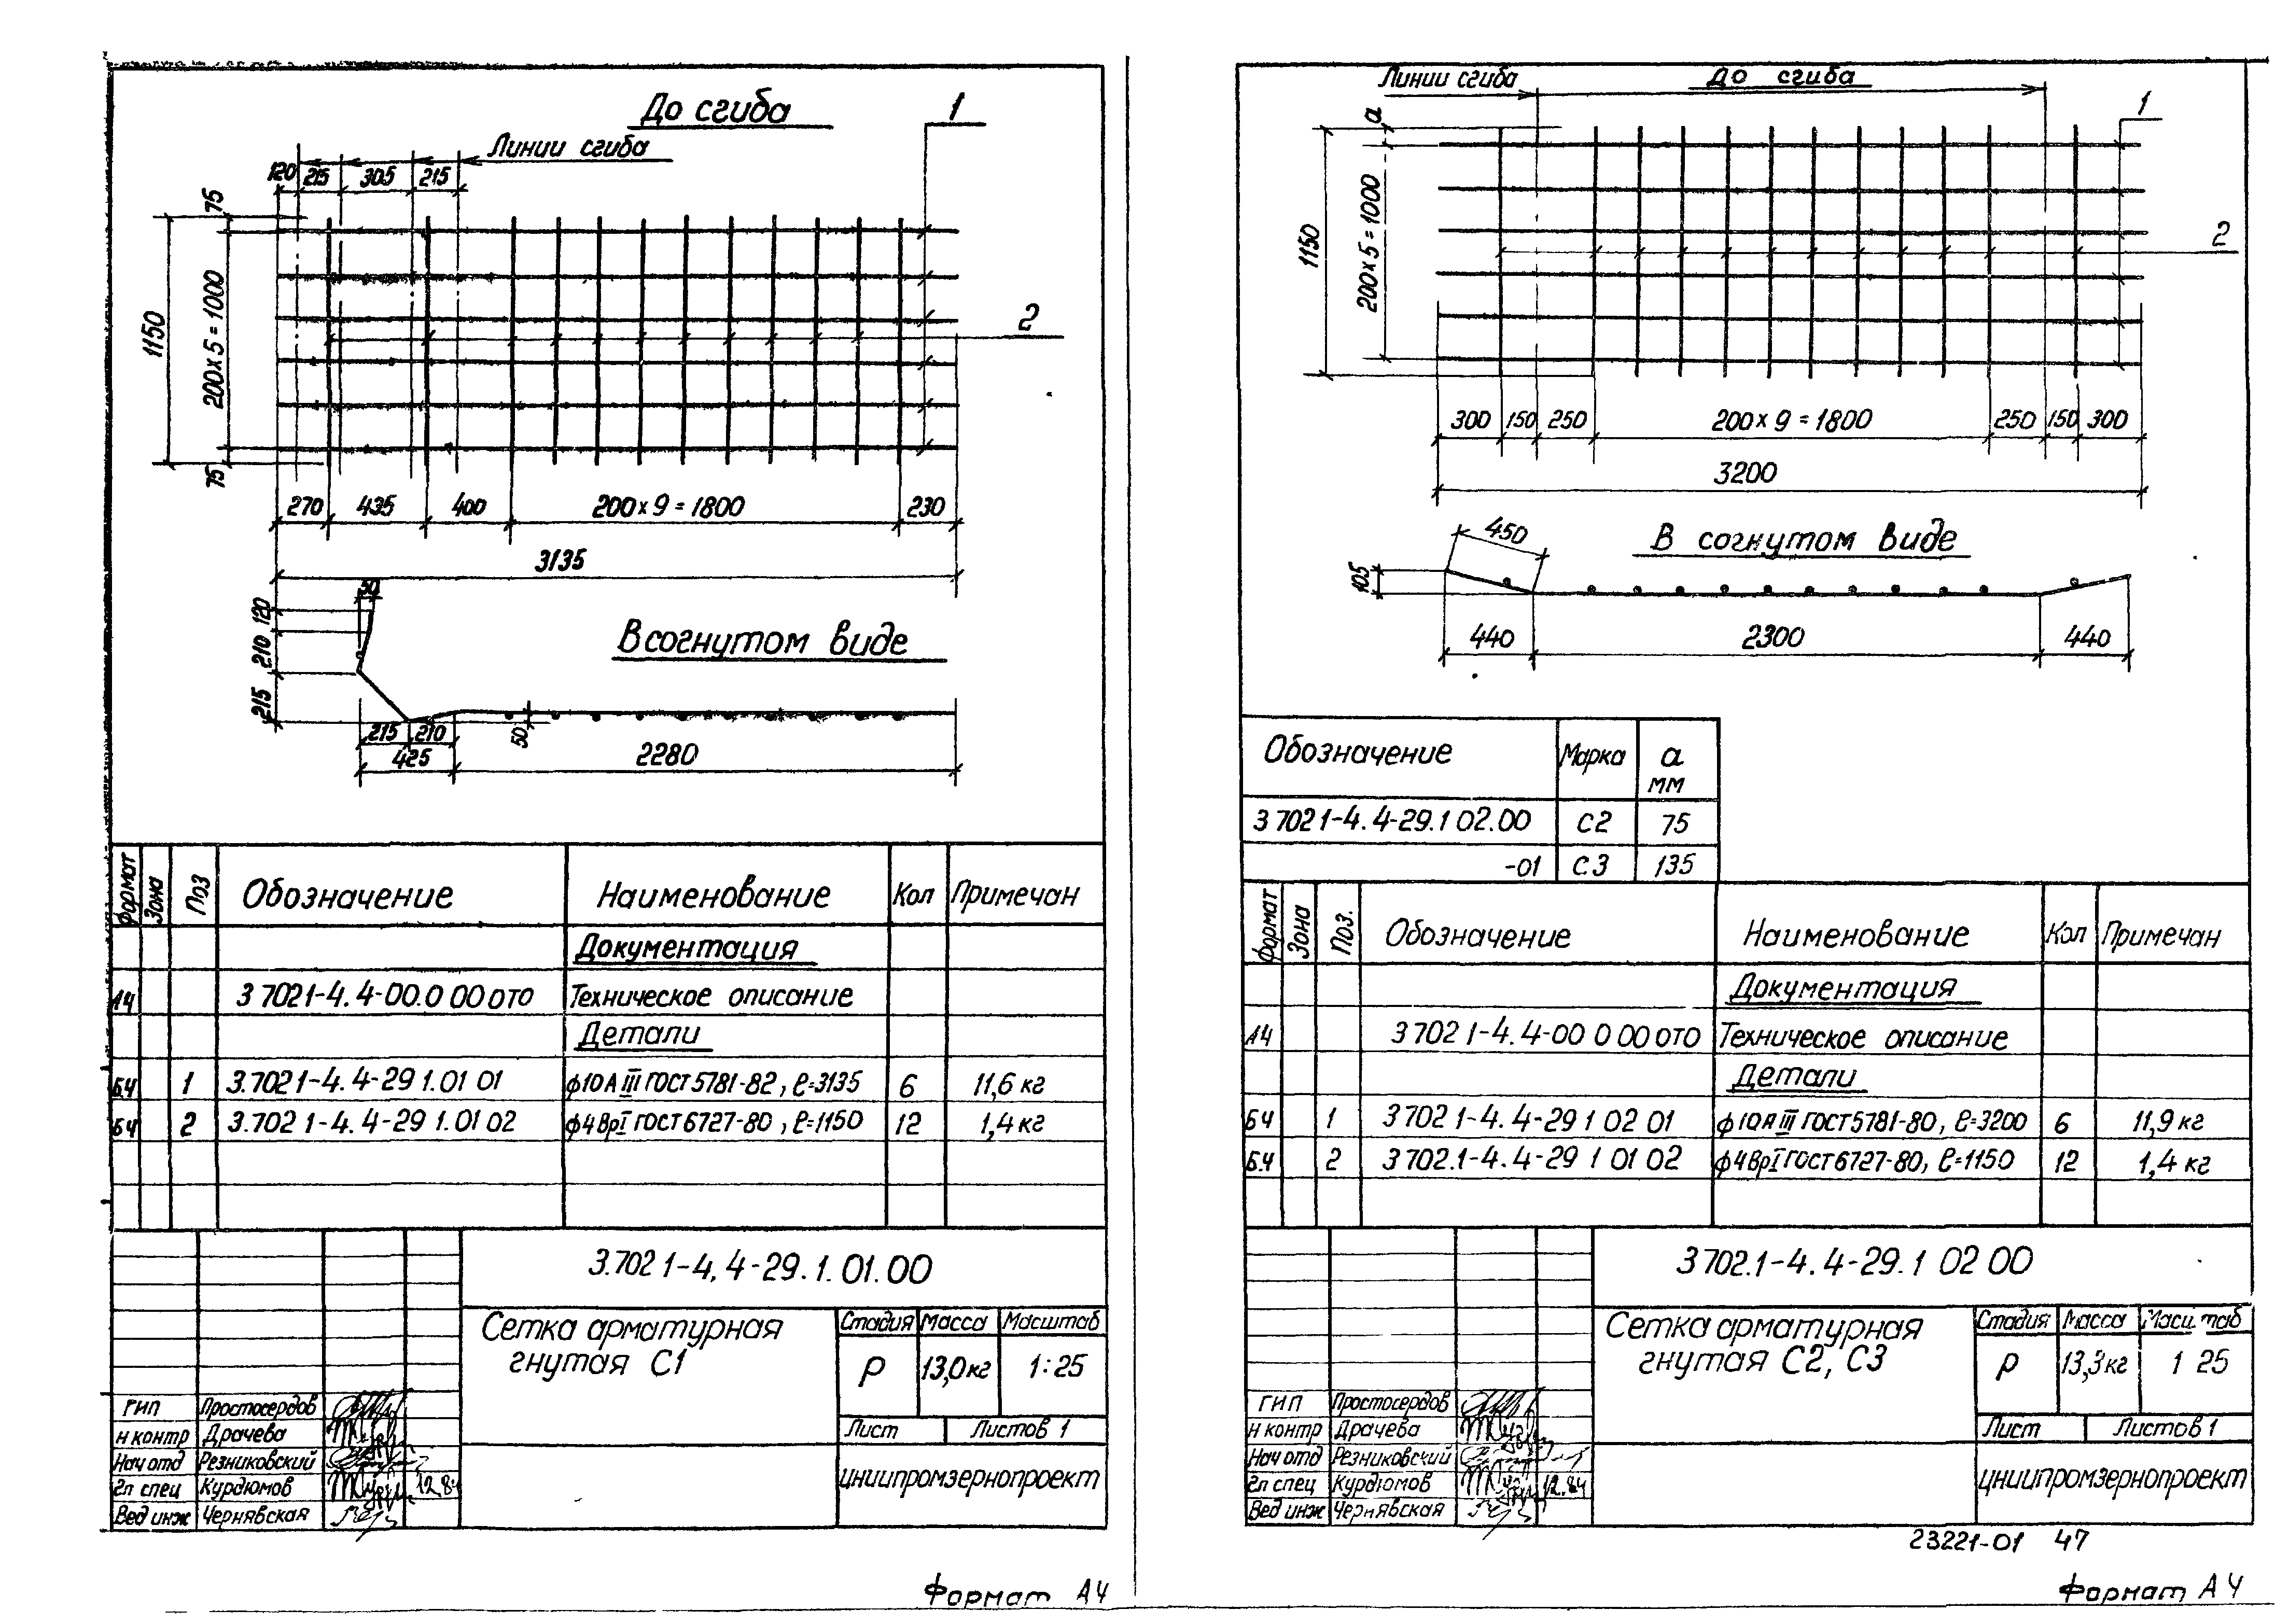 До сгиба
1
Линии сгиба
120 215 305 215
75
1150
200х5=1000
75
2
270 435 400 200х9=1800 230
3135
50
120
210
215
В согнутом виде
215 210
50
425 2280
Формат Зона Поз Обозначение Наименование Кол Примечан
Документация
А4 3 7021-4.4-00.0 00 0ТО Техническое описание
Детали
БЧ 1 3.7021-4.4-29 1.01 01 ф10АIII ГОСТ 5781-82, ℓ=3135 6 11,6 кг
БЧ 2 3.702 1-4.4-29 1.01 02 ф4ВрI ГОСТ 6727-80, ℓ=1150 12 1,4 кг
3.702 1-4.4-29.1.01.00
Сетка арматурная
гнутая С1
Стадия Масса Масштаб
Р 13,0кг 1:25
Лист Листов 1
ГИП Простосердов
Н контр Драчева
Нач отд Резниковский
Гл спец Курдюмов 12.84
Вед инж Чернявская
ЦНИИПРОМЗЕРНОПРОЕКТ
Формат А4
Линии сгиба
До сгиба
1
а
1150
200х5=1000
2
300 150 250 200х9=1800 250 150 300
3200
450
В согнутом виде
105
440 2300 440
Обозначение Марка а мм
3 702 1-4.4-29.1 02.00 С2 75
-01 С.3 135
Формат Зона Поз. Обозначение Наименование Кол Примечан
Документация
А4 3 702 1-4.4-00 0 00 0ТО Техническое описание
Детали
БЧ 1 3 702 1-4.4-29 1 02 01 ф10АIII ГОСТ 5781-80, ℓ=3200 6 11,9 кг
Б.Ч 2 3 702.1-4.4-29 1 01 02 ф4ВрI ГОСТ 6727-80, ℓ=1150 12 1,4 кг
3 702.1-4.4-29.1 02 00
Сетка арматурная
гнутая С2, С3
Стадия Масса Масштаб
Р 13,3кг 1 25
Лист Листов 1
ГИП Простосердов
Н контр Драчева
Нач отд Резниковский
Гл спец Курдюмов 12.84
Вед инж Чернявская
ЦНИИПРОМЗЕРНОПРОЕКТ
23221-01 47
Формат А4